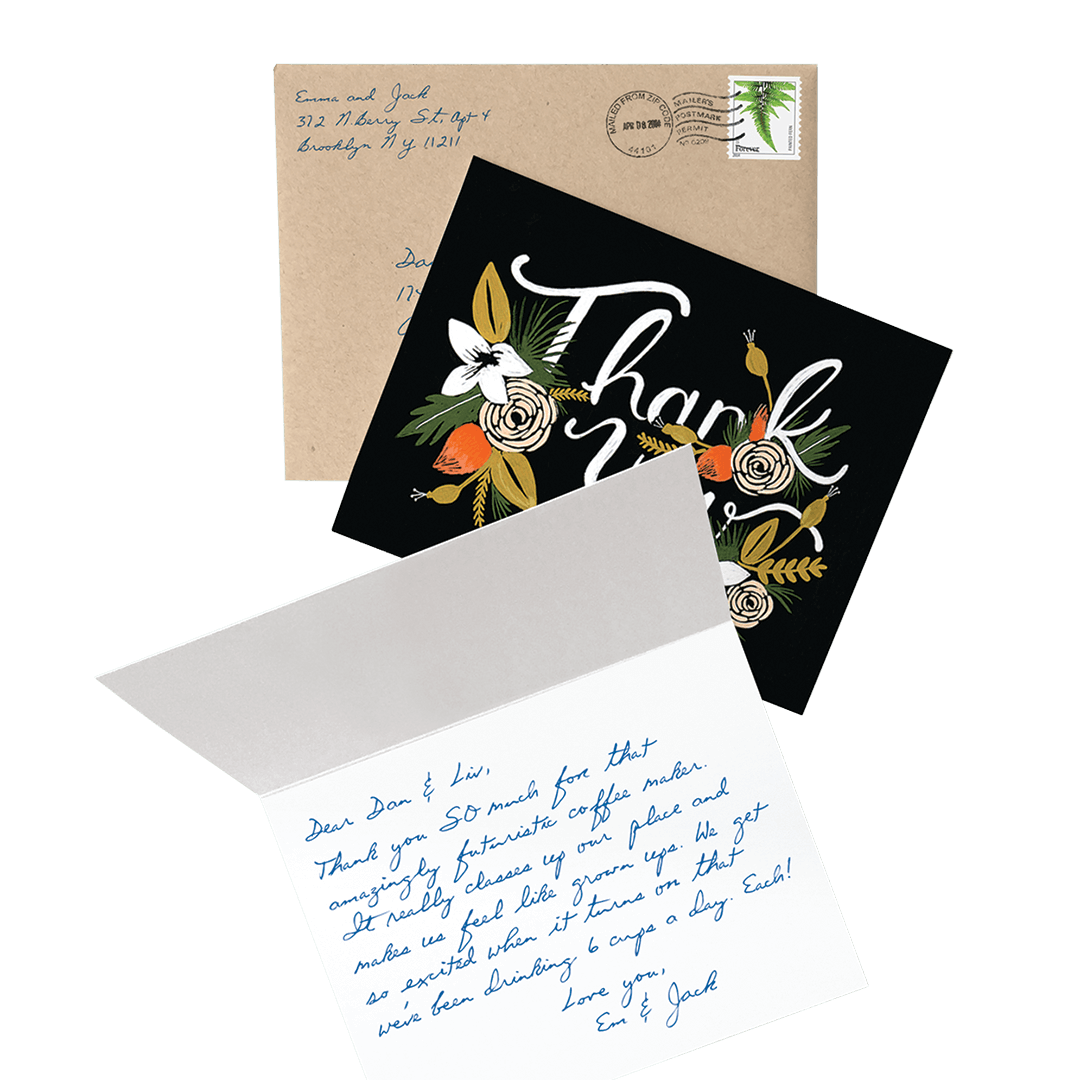 Emma and Jack
372 N. Berry St. Apt 4
Brooklyn NY 11211
MAILED FROM ZIP CODE
APR 08
44101
MAILER'S
POSTMARK
PERMIT
Forever
Thank
Dear Dan & Liv,
Thank you SO much for that
amazingly futuristic coffee maker.
It really classes up our place and
makes us feel like grown ups. We get
so excited when it turns on that
we've been drinking 6 cups a day. Each!
Love you,
Em & Jack